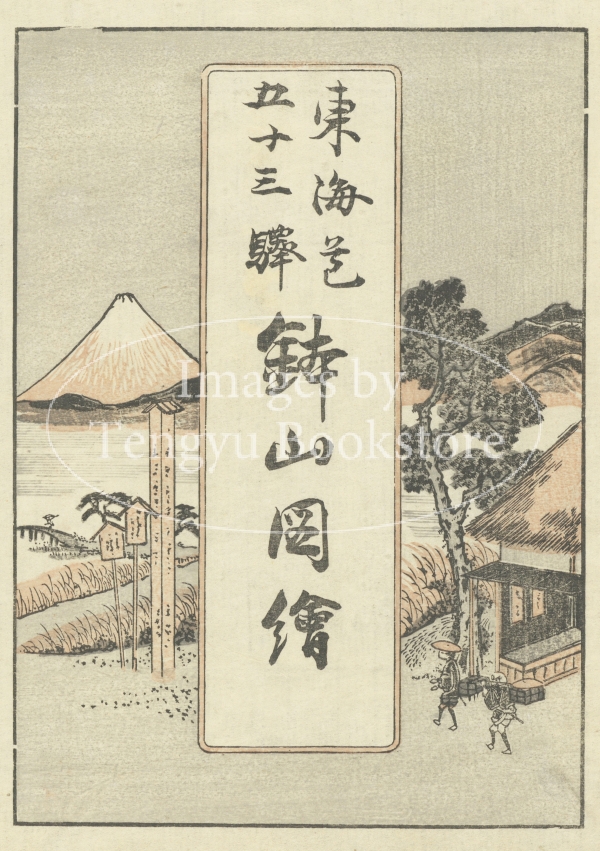 東海道
五十三驛
鉢山図繪
Images by
Tengyu Bookstore